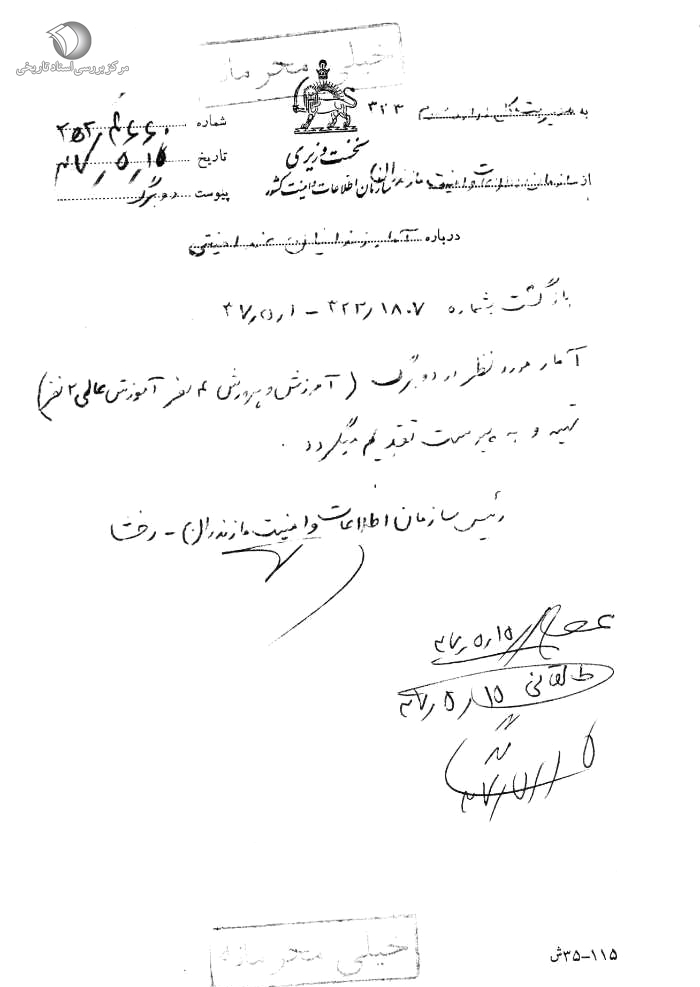 خیلی محرمانه
مرکز بررسی اسناد تاریخی
به مدیریت کل اداره سوم ۳۲۳
نخست وزیری
سازمان اطلاعات و امنیت کشور
از سازمان اطلاعات و امنیت مازندران
شماره
تاریخ ۴۷/۵/۱۵
پیوست دو برگ
درباره
بازگشت بشماره ۳۲۳/۱۸۰۷ –
آمار مورد نظر در دو برگ (آموزش و پرورش ۴ نفر آموزش عالی ۲ نفر)
تهیه و به پیوست تقدیم میگردد .
رئیس سازمان اطلاعات و امنیت مازندران – رخشا
۴۷/۵/۱۵
طالقانی ۴۷/۵/۱۵
خیلی محرمانه
۱۱۵–۳۵ش